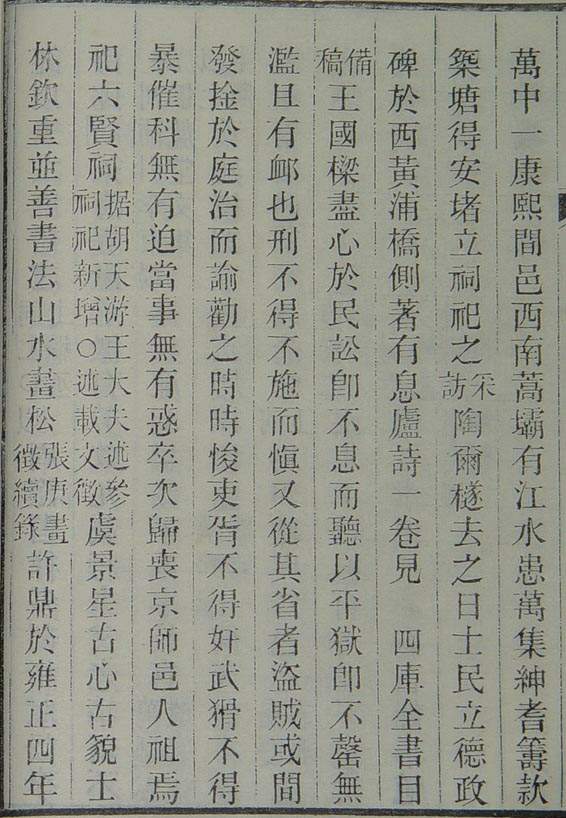 萬中一康熙間邑西南蒿壩有江水患萬集紳耆籌款
築塘得安堵立祠祀之采訪陶爾檖去之日士民立德政
碑於西黃浦橋側著有息廬詩一卷見　四庫全書目
備稿王國樑盡心於民訟卽不息而聽以平獄卽不罄無
濫且有卹也刑不得不施而愼又從其省者盜賊或間
發捡於庭治而諭勸之時時悛吏胥不得奸武猾不得
暴催科無有迫當事無有惑卒次歸喪京師邑人祖焉
祀六賢祠据胡天游王大夫述參祠祀新增○述載文徵虞景星古心古貌士
林欽重並善書法山水畫松張庚畫徵續錄許鼎於雍正四年